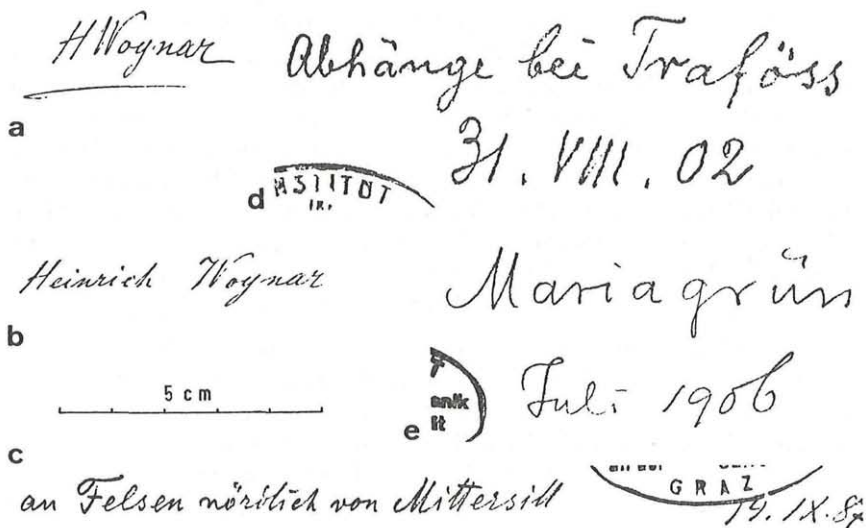 HWoynar
Abhänge bei Traföss
31. VIII. 02
a
d
NSTITUT
Heinrich Woynar
Mariagrün
Juli 1906
b
5 cm
e
anik
it
c
an Felsen nördlich von Mittersill
GRAZ